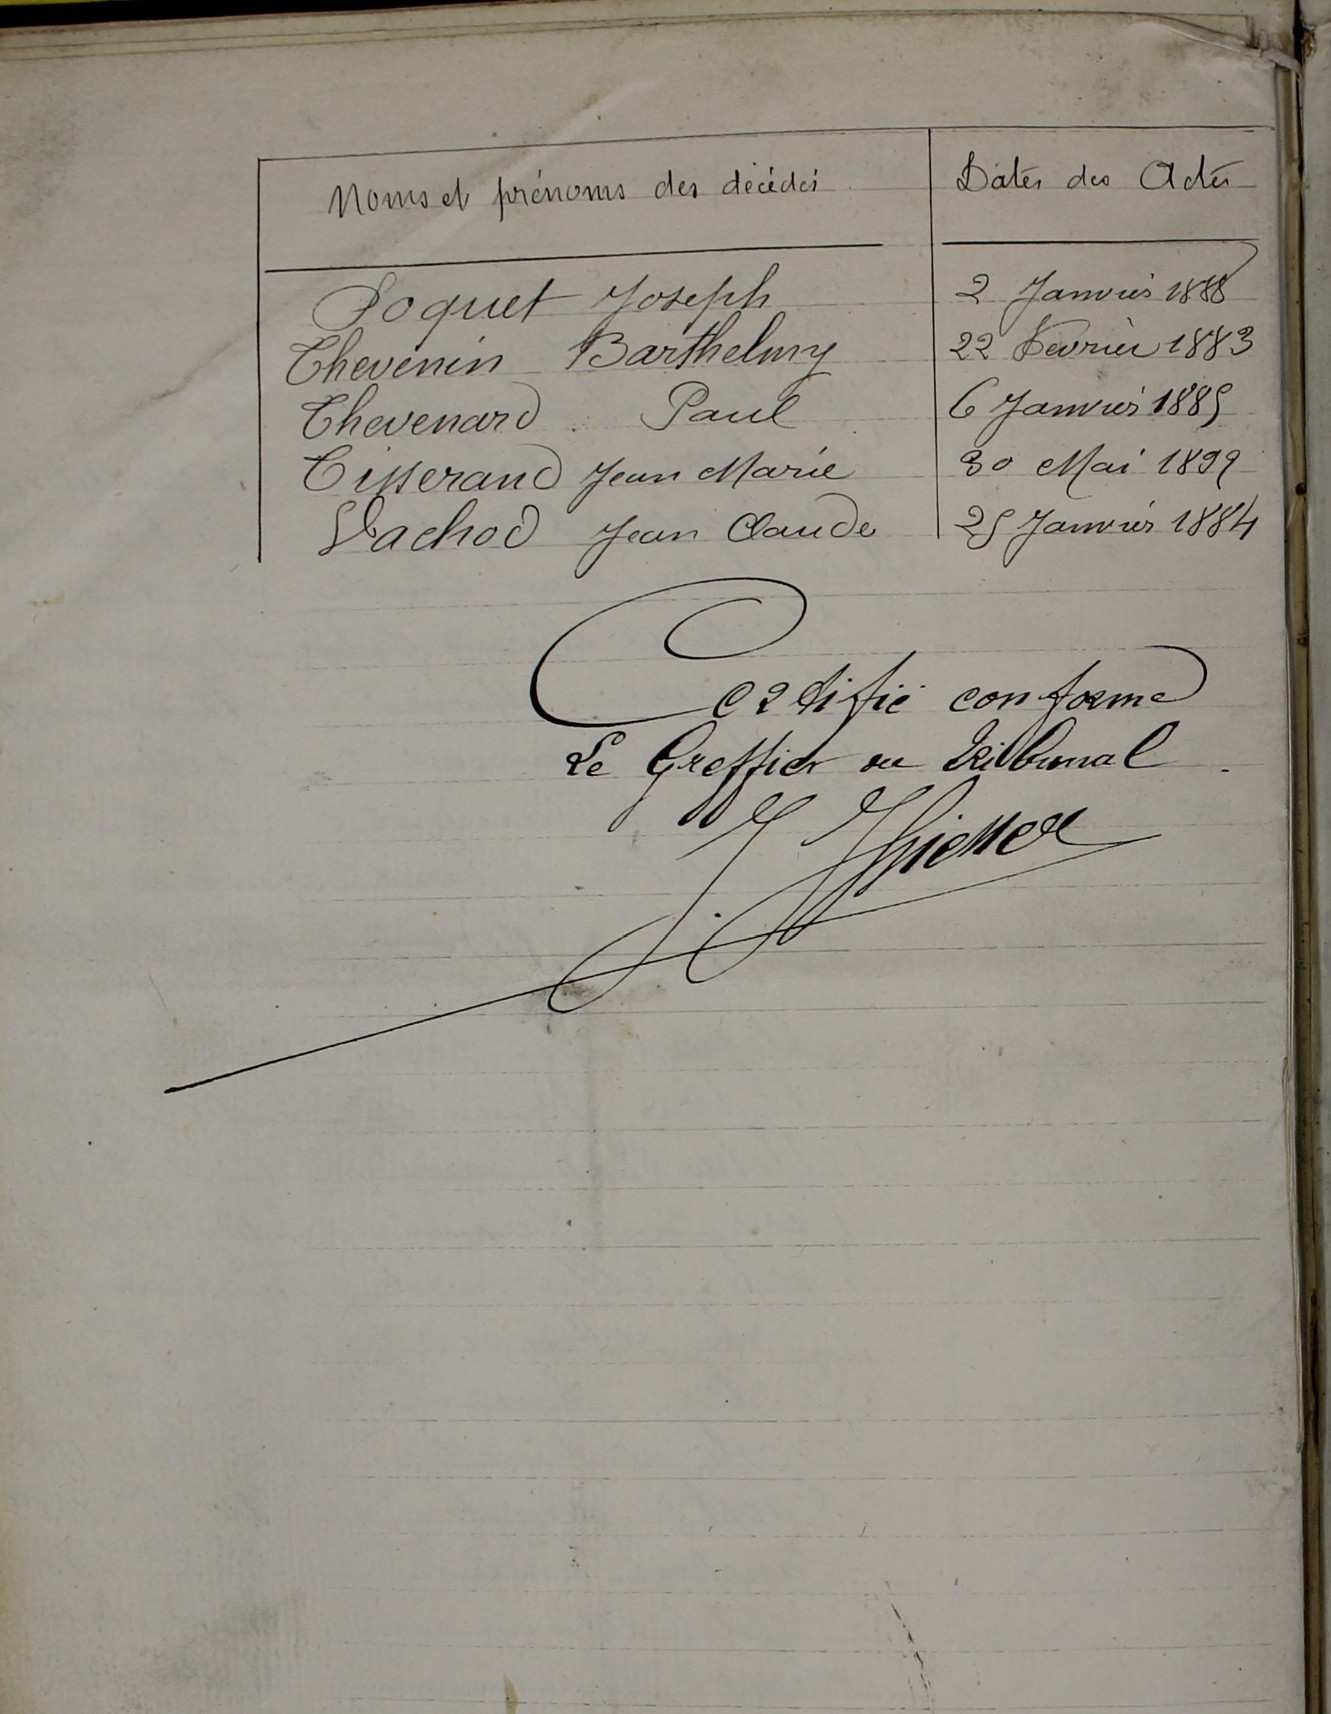 Noms et prénoms des décédés Dates des Actes
Poquet Joseph 2 Janvier 1888
Thevenin Barthelmy 22 Fevrier 1883
Thevenard Paul 6 Janvier 1885
Tisserand Jean Marie 30 Mai 1892
Vachod Jean Claude 25 Janvier 1884
Certifié conforme
Le Greffier du Tribunal